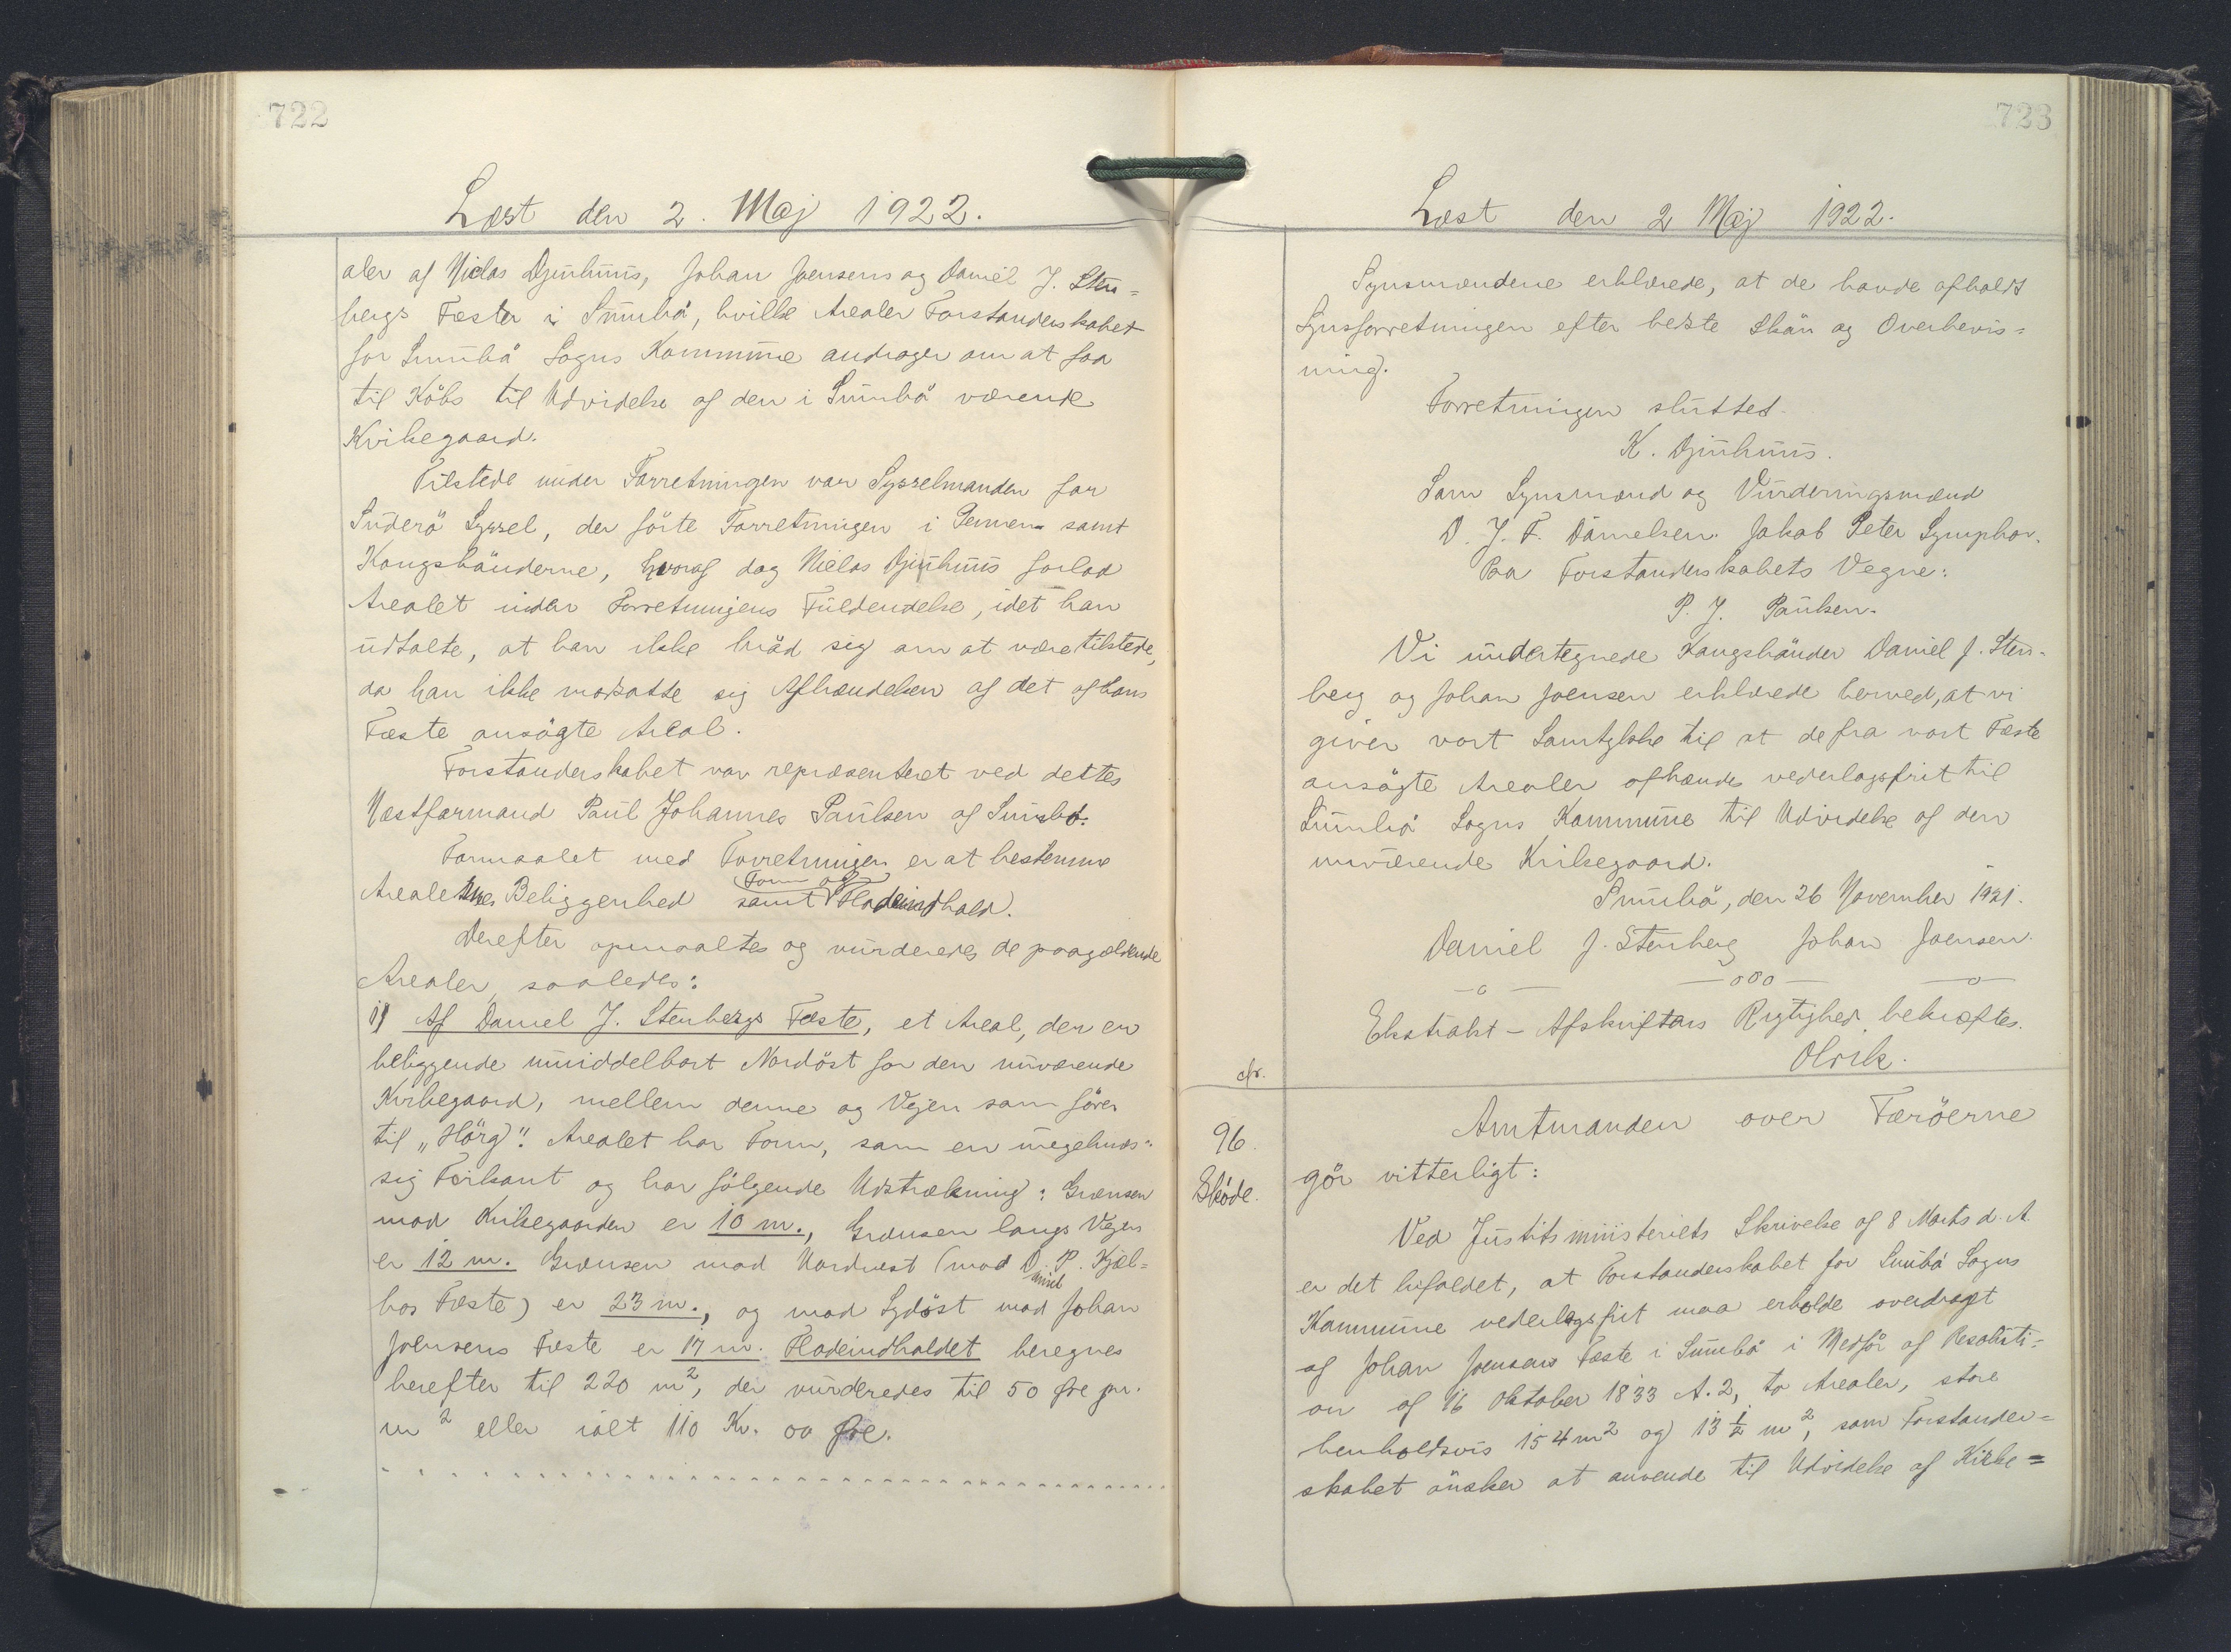 722
Læst den 2. Maj 1922.
aler af Niclas Djurhuus, Johan Joensens og Daniel J. Sten=
bergs Fæste i Sumbö, hvilke Arealer Forstanderskabet
for Sumbö Sogns Kommune andrager om at faa
til Köbs til Udvidelse af den i Sumbö værende
Kirkegaard.
Tilstede under Forretningen var Sysselmanden for
Suderö Syssel, der förte Forretningen i Pennen samt
Kongsbönderne, hvoraf dog Niclas Djurhuus forlod
Arealet under Forretningens Fuldendelse, idet han
udtalte, at han ikke bröd sig om at være tilstede,
da han ikke modsatte sig Afhændelsen af det af hans
Fæste ansögte Areal.
Forstanderskabet var repræsenteret ved dettes
Næstformand Paul Johannes Paulsen af Sumbö.
Formaalet med Forretningen er at bestemme
Form og
Arealernes Beliggenhed samt Fladeindhold.
Derefter opmaaltes og vurderedes de paagældende
Arealer saaledes:
1) Af Daniel J. Stenbergs Fæste, et Areal, der er
beliggende umiddelbart Nordöst for den nuværende
Kirkegaard, mellem denne og Vejen som förer
til „Hörg". Arealet har Form, som en uregelmæs=
sig Firkant og har fölgende Udstrækning: Grænsen
mod Kirkegaarden er 10 m., Grænsen langs Vejen
er 12 m. Grænsen mod Nordvest (mod D. P. Kjæl=
bos Fæste) er 23 m., og mod Sydöst mod Johan
Joensens Fæste er 17 m. Fladeindholdet beregnes
herefter til 220 m², der vurderedes til 50 Øre pr.
m² eller ialt 110 Kr. 00 Øre.
723
Læst den 2 Maj 1922.
Synsmændene erklærede, at de havde afholdt
Synsforretningen efter bedste Skön og Overbevis=
ning.
Forretningen sluttet.
K. Djurhuus.
Som Synsmænd og Vurderingsmænd
D. J. F. Danielsen. Jakob Peter Symphor.
Paa Forstanderskabets Vegne:
P. J. Paulsen.
Vi undertegnede Kongsbönder Daniel J. Sten=
berg og Johan Joensen erklærede herved, at vi
giver vort Samtykke til at de fra vort Fæste
ansögte Arealer afhændes vederlagsfrit til
Sumbö Sogns Kommune til Udvidelse af den
nuværende Kirkegaard.
Sumbö, den 26 November 1921.
Daniel J. Stenberg Johan Joensen.
—o— —ooo— —o—
Ekstrakt-Afskriftens Rigtighed bekræftes.
Olrik.
96.
Skøde.
Amtmanden over Færöerne
gör vitterligt:
Ved Justitsministeriets Skrivelse af 8 Marts d. A.
er det bifaldet, at Forstanderskabet for Sumbö Sogns
Kommune vederlagsfrit maa erholde overdraget
af Johan Joensens Fæste i Sumbö i Medför af Resoluti=
on af 16 Oktober 1833 A. 2, to Arealer, store
henholdsvis 154 m² og 13 ½ m², som Forstander=
skabet önsker at anvende til Udvidelse af Kirke=